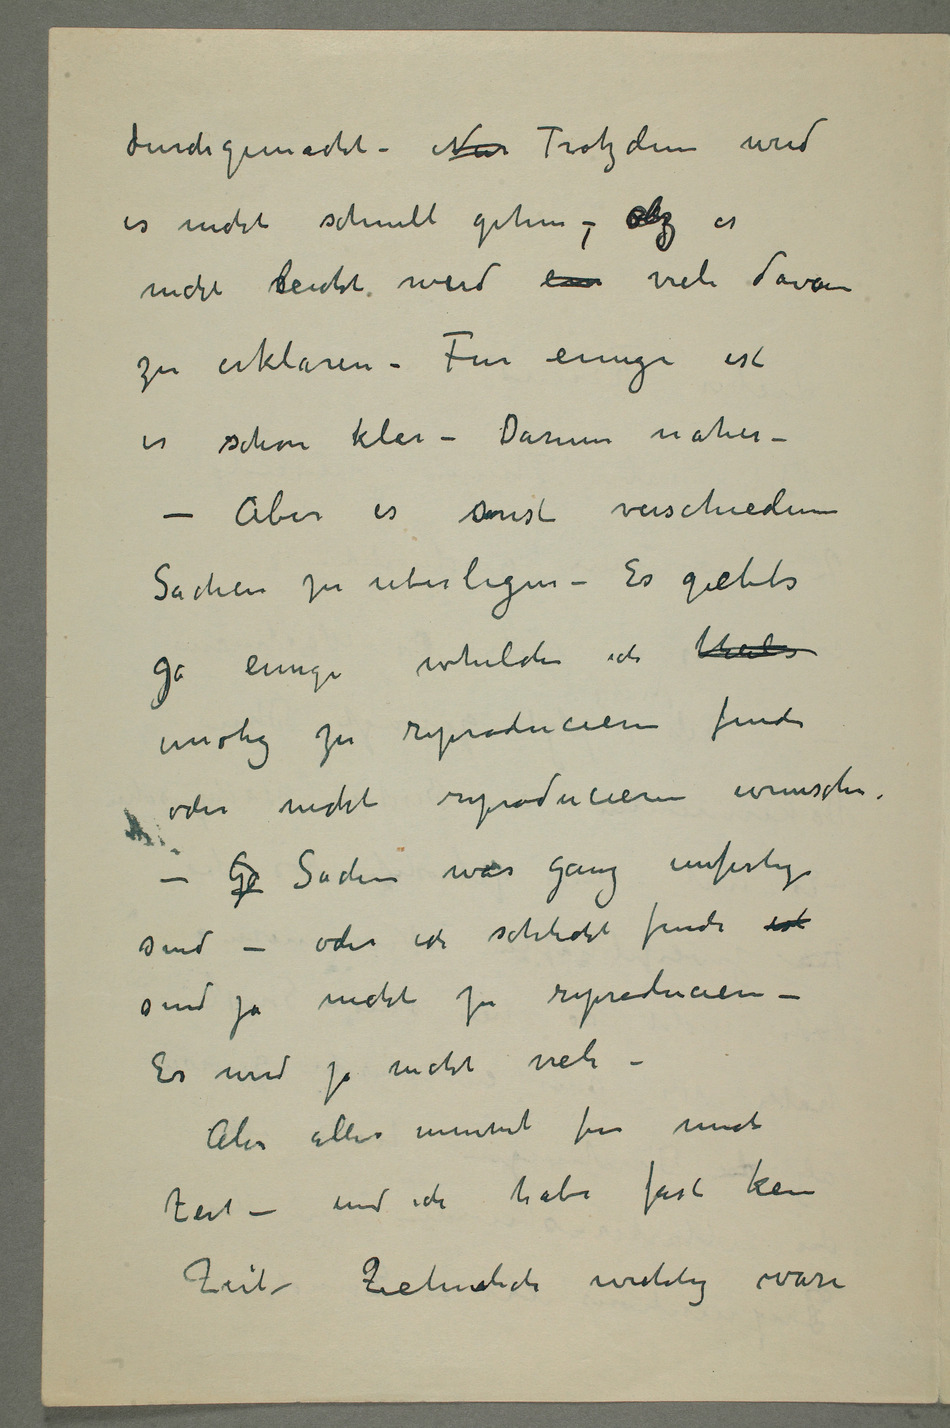 durchgemacht – Nur Trotzdem wird
es nicht schnell gehen –, es
nicht leicht werd ein viele davon
zu erklären – Für einige ist
es schon klar – Darum näher –
– Aber es sonst verschiedene
Sachen zu uberlegen – Es giebts
ja einige whelche ich
unotig zu reproducieren finde
oder nicht reproducieren wunsche.
– Ja Sachen was ganz unfertig
sind – oder ich schlecht finde ist
sind ja nicht zu reproducieren –
Es wird ja nicht viele –
Aber alles nimmt fur mich
Zeit – und ich habe fast kein
Zeit – Ziehmlich wichtig ware